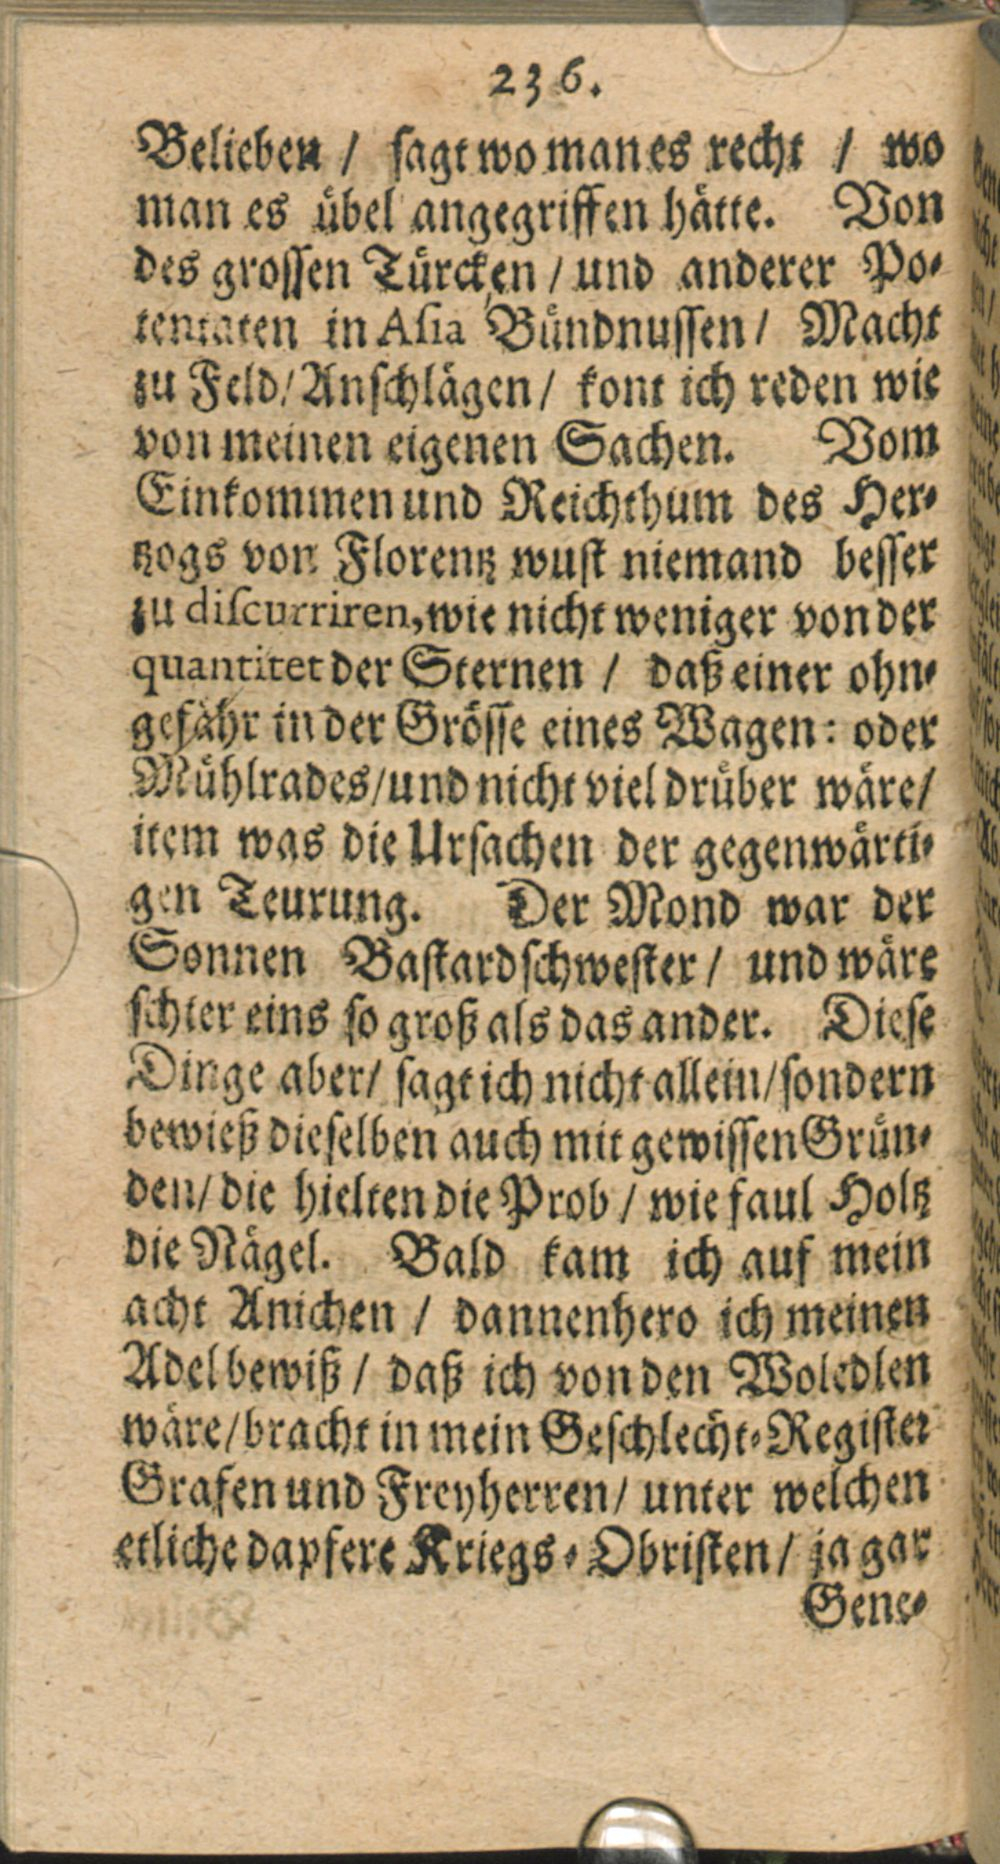 236.
Belieben / ſagt wo man es recht / wo
man es uͤbel angegriffen haͤtte. Von
des groſſen Tuͤrcken / und anderer Po-
tentaten in Aſia Buͤndnuſſen / Macht
zu Feld / Anſchlaͤgen / kont ich reden wie
von meinen eigenen Sachen. Vom
Einkommen und Reichthum des Her-
tzogs von Florentz wuſt niemand beſſer
zu diſcurriren, wie nicht weniger von der
quantitet der Sternen / daß einer ohn-
gefaͤhr in der Groͤſſe eines Wagen: oder
Muͤhlrades / und nicht viel druͤber waͤre /
item was die Urſachen der gegenwaͤrti-
gen Teurung. Der Mond war der
Sonnen Baſtardſchweſter / und waͤre
ſchier eins ſo groß als das ander. Dieſe
Dinge aber / ſagt ich nicht allein / ſondern
bewieß dieſelben auch mit gewiſſen Gruͤn-
den / die hielten die Prob / wie faul Holtz
die Naͤgel. Bald kam ich auf mein
acht Anichen / dannenhero ich meinen
Adel bewiß / daß ich von den Woledlen
waͤre / bracht in mein Geſchlecht-Regiſter
Grafen und Freyherren / unter welchen
etliche dapfere Kriegs-Obriſten / ja gar
Gene-